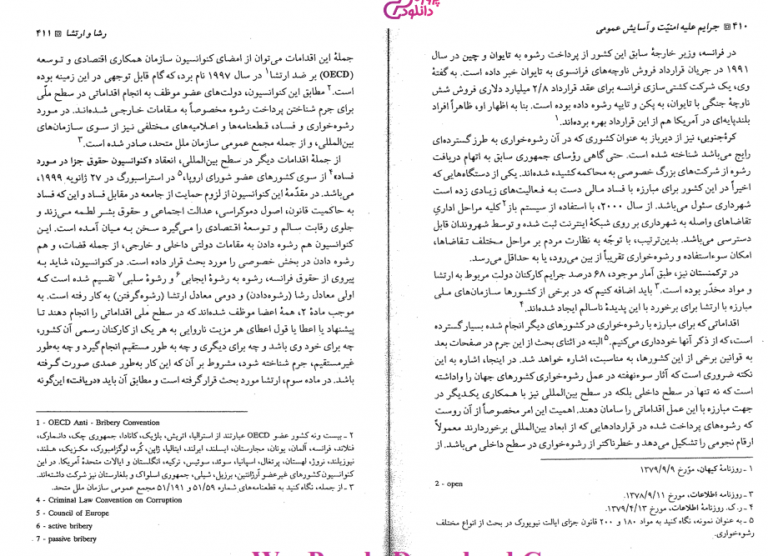 ۴۱۰ جرایم علیه امنیّت و آسایش عمومی
در فرانسه، وزیر خارجۀ سابق این کشور از پرداخت رشوه به تایوان و چین در سال
۱۹۹۱ در جریان قرارداد فروش ناوچه‌های فرانسوی به تایوان خبر داده است. به گفتۀ
وی، یک شرکت کشتی‌سازی فرانسه برای عقد قرارداد ۲/۸ میلیارد دلاری فروش شش
ناوچۀ جنگی با تایوان، به پکن و تایپه رشوه داده بوده است. بنا به اظهار او، ظاهراً افراد
بلندپایه‌ای در آمریکا هم از این قرارداد بهره برده‌اند.۱
کرۀ‌جنوبی، نیز از دیرباز به عنوان کشوری که در آن رشوه‌خواری به طرز گسترده‌ای
رایج می‌باشد شناخته شده است. حتی گاهی رؤسای جمهوری سابق به اتهام دریافت
رشوه از شرکت‌های بزرگ خصوصی به محاکمه کشیده شده‌اند. یکی از دستگاه‌هایی که
اخیراً در این کشور برای مبارزه با فساد مالی دست به فعالیت‌های زیادی زده است
شهرداری سئول می‌باشد. از سال ۲۰۰۰، با استفاده از سیستم باز۲ کلیه مراحل اداری
تقاضاهای واصله به شهرداری بر روی شبکۀ اینترنت ثبت شده و توسط شهروندان قابل
دسترسی می‌باشد. بدین‌ترتیب، با توجّه به نظارت مردم بر مراحل مختلف تقاضاها،
امکان سوءاستفاده و رشوه‌خواری تقریباً از بین می‌رود، یا به حداقل می‌رسد.
در ترکمنستان نیز، طبق آمار موجود، ۶۸ درصد جرایم کارکنان دولت مربوط به ارتشا
و مواد مخدّر بوده است.۳ باید اضافه کنیم که در برخی از کشورها سازمان‌های ملی
مبارزه با ارتشا برای برخورد با این پدیدۀ ناسالم ایجاد شده‌اند.۴
اقداماتی که برای مبارزه با رشوه‌خواری در کشورهای دیگر انجام شده بسیار گسترده
است، که از ذکر آنها خودداری می‌کنیم.۵ البته در اثنای بحث از این جرم در صفحات بعد
به قوانین برخی از این کشورها، به مناسبت، اشاره خواهد شد. در اینجا، اشاره به این
نکته ضروری است که آثار سوء‌نهفته در عمل رشوه‌خواری کشورهای جهان را واداشته
که نه تنها در سطح داخلی بلکه در سطح بین‌المللی نیز با همکاری یکدیگر در
جهت مبارزه با این عمل اقداماتی را سامان دهند. اهمیت این امر مخصوصاً از آن روست
که رشوه‌های پرداخت شده در قراردادهایی که از ابعاد بین‌المللی برخوردارند معمولاً
ارقام نجومی را تشکیل می‌دهد و خطرناکتر از رشوه‌خواری در سطح داخلی می‌باشد. از
۱ - روزنامۀ کیهان، مورّخ ۱۳۷۹/۹/۹
2 - open
۳ - روزنامه اطلاعات، مورخ ۱۳۷۸/۹/۱۱.
۴ - ر.ک. روزنامۀ اطلاعات، مورخ ۱۳۷۹/۴/۱۳.
۵ - به عنوان نمونه، نگاه کنید به مواد ۱۸۰ و ۲۰۰ قانون جزای ایالت نیویورک در بحث از انواع مختلف
رشوه‌خواری.
رشا و ارتشا ۴۱۱
جملۀ این اقدامات می‌توان از امضای کنوانسیون سازمان همکاری اقتصادی و توسعه
(OECD) بر ضد ارتشا۱ در سال ۱۹۹۷ نام برد، که گام قابل توجهی در این زمینه بوده
است.۲ مطابق این کنوانسیون، دولت‌های عضو موظف به انجام اقداماتی در سطح ملّی
برای جرم شناختن پرداخت رشوه مخصوصاً به مقامات خارجی شده‌اند. در مورد
رشوه‌خواری و فساد، قطعنامه‌ها و اعلامیه‌های مختلفی نیز از سوی سازمان‌های
بین‌المللی، و از جمله مجمع عمومی سازمان ملل متحد، صادر شده است.۳
از جمله اقدامات دیگر در سطح بین‌المللی، انعقاد «کنوانسیون حقوق جزا در مورد
فساد»۴ از سوی کشورهای عضو شورای اروپا،۵ در استراسبورگ در ۲۷ ژانویه ۱۹۹۹،
می‌باشد. در مقدّمۀ این کنوانسیون از لزوم حمایت از جامعه در مقابل فساد و این که فساد
به حاکمیت قانون، اصول دموکراسی، عدالت اجتماعی و حقوق بشر لطمه می‌زند و
جلوی رقابت سالم و توسعۀ اقتصادی را می‌گیرد سخن به میان آمده است. این
کنوانسیون هم رشوه دادن به مقامات دولتی داخلی و خارجی، از جمله قضات، و هم
رشوه دادن در بخش خصوصی را مورد بحث قرار داده است. در کنوانسیون، شاید به
پیروی از حقوق فرانسه، رشوه به رشوۀ ایجابی۶ و رشوۀ سلبی۷ تقسیم شده است که
اولی معادل رشا (رشوه‌دادن) و دومی معادل ارتشا (رشوه‌گرفتن) به کار رفته است. به
موجب مادۀ ۲، همۀ اعضا موظف شده‌اند که در سطح ملی اقداماتی را انجام دهند تا
پیشنهاد یا اعطا یا قول اعطای هر مزیت ناروایی به هر یک از کارکنان رسمی آن کشور،
چه برای خود وی باشد و چه برای دیگری و چه به طور مستقیم انجام گیرد و چه به‌طور
غیرمستقیم، جرم شناخته شود، مشروط بر آن که این کار به‌طور عمدی صورت گرفته
باشد. در ماده سوم، ارتشا مورد بحث قرار گرفته است و مطابق آن باید «دریافت» این‌گونه
1 - OECD Anti - Bribery Convention
۲ - بیست و نه کشور عضو OECD عبارتند از استرالیا، اتریش، بلژیک، کانادا، جمهوری چک، دانمارک،
فنلاند، فرانسه، آلمان، یونان، مجارستان، ایسلند، ایرلند، ایتالیا، ژاپن، کره، لوگزامبورک، مکزیک، هلند،
نیوزیلند، نروژ، لهستان، پرتغال، اسپانیا، سوئد، سوئیس، ترکیه، انگلستان و ایالات متحدۀ آمریکا. در این
کنوانسیون کشورهای غیرعضو آرژانتین، برزیل، شیلی، جمهوری اسلواک و بلغارستان نیز شرکت داشته‌اند.
۳ - از جمله، نگاه کنید به قطعنامه‌های شماره ۵۱/۵۹ و ۵۱/۱۹۱ مجمع عمومی سازمان ملل متحد.
4 - Criminal Law Convention on Corruption
5 - Council of Europe
6 - active bribery
7 - passive bribery
دانلود